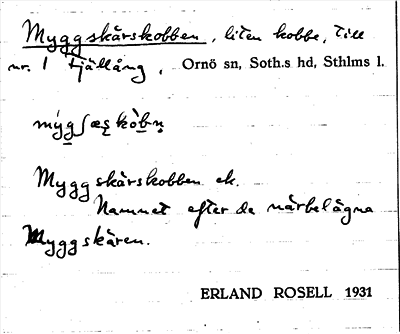 Myggskärskobben, liten kobbe, till
nr. 1 Fjällång, Ornö sn, Soth.s hd, Sthlms l.
mýgʃæʂkòbn̥
Myggskärskobben ek.
Namnet efter de närbelägna
Myggskären.
ERLAND ROSELL 1931